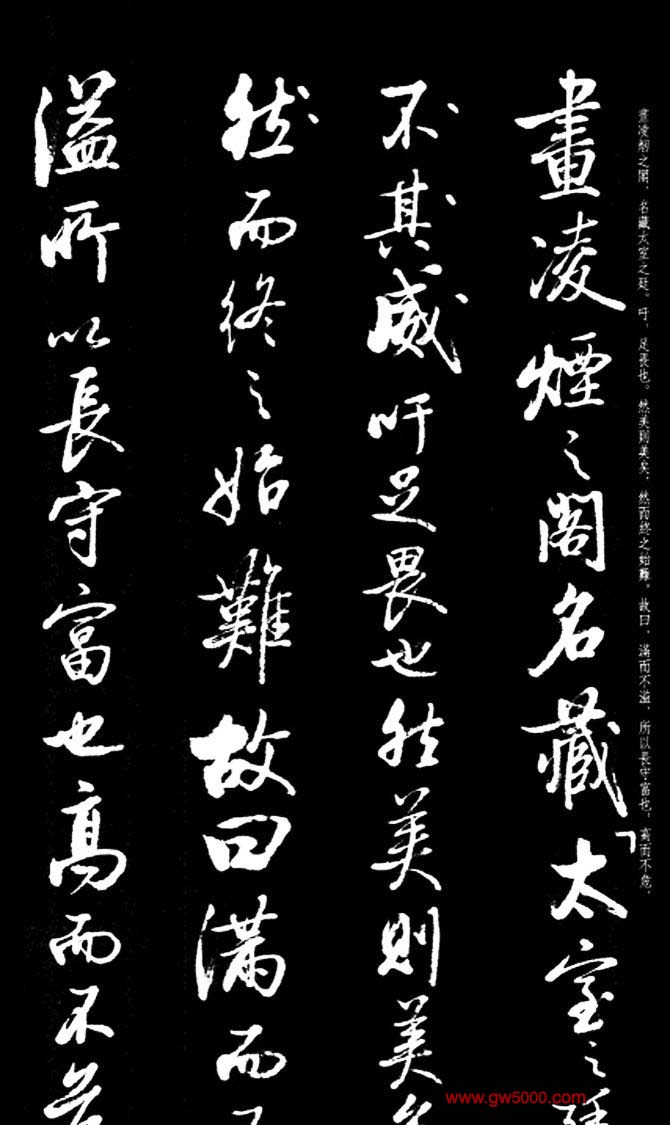 畫凌烟之閣、名藏太室之廷。吁、足畏也。然美則美矣、然而終之始難。故曰、滿而不溢、所以長守富也、高而不危、
畫凌煙之閣名藏太室之廷
不其威吁足畏也然美則美矣
然而終之始難故曰滿而不
溢所以長守富也高而不危
www.gw5000.com